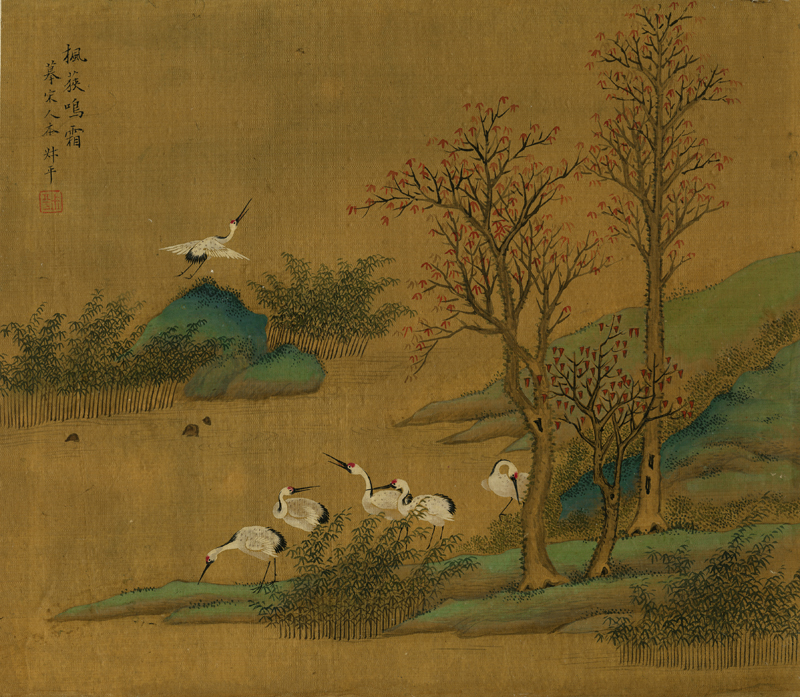 楓荻鳴霜
摹宋人本 姝平